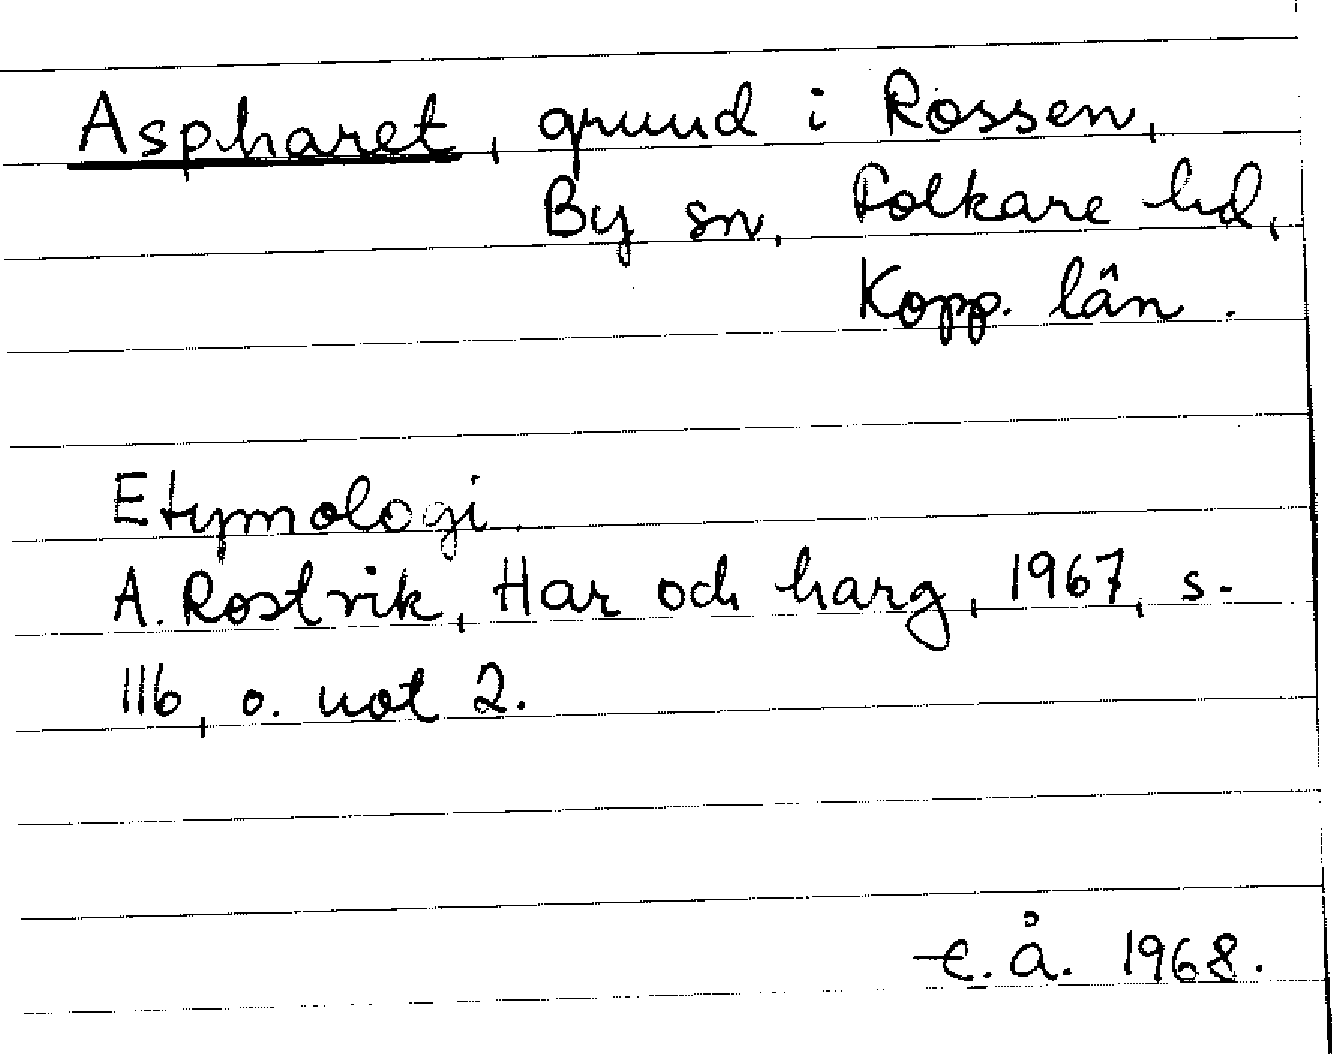 Aspharet, grund i Rossen,
By sn, Folkare hd,
Kopp. län.
Etymologi.
A. Rostvik, Har och harg, 1967, s.
116, o. not 2.
e. å. 1968.